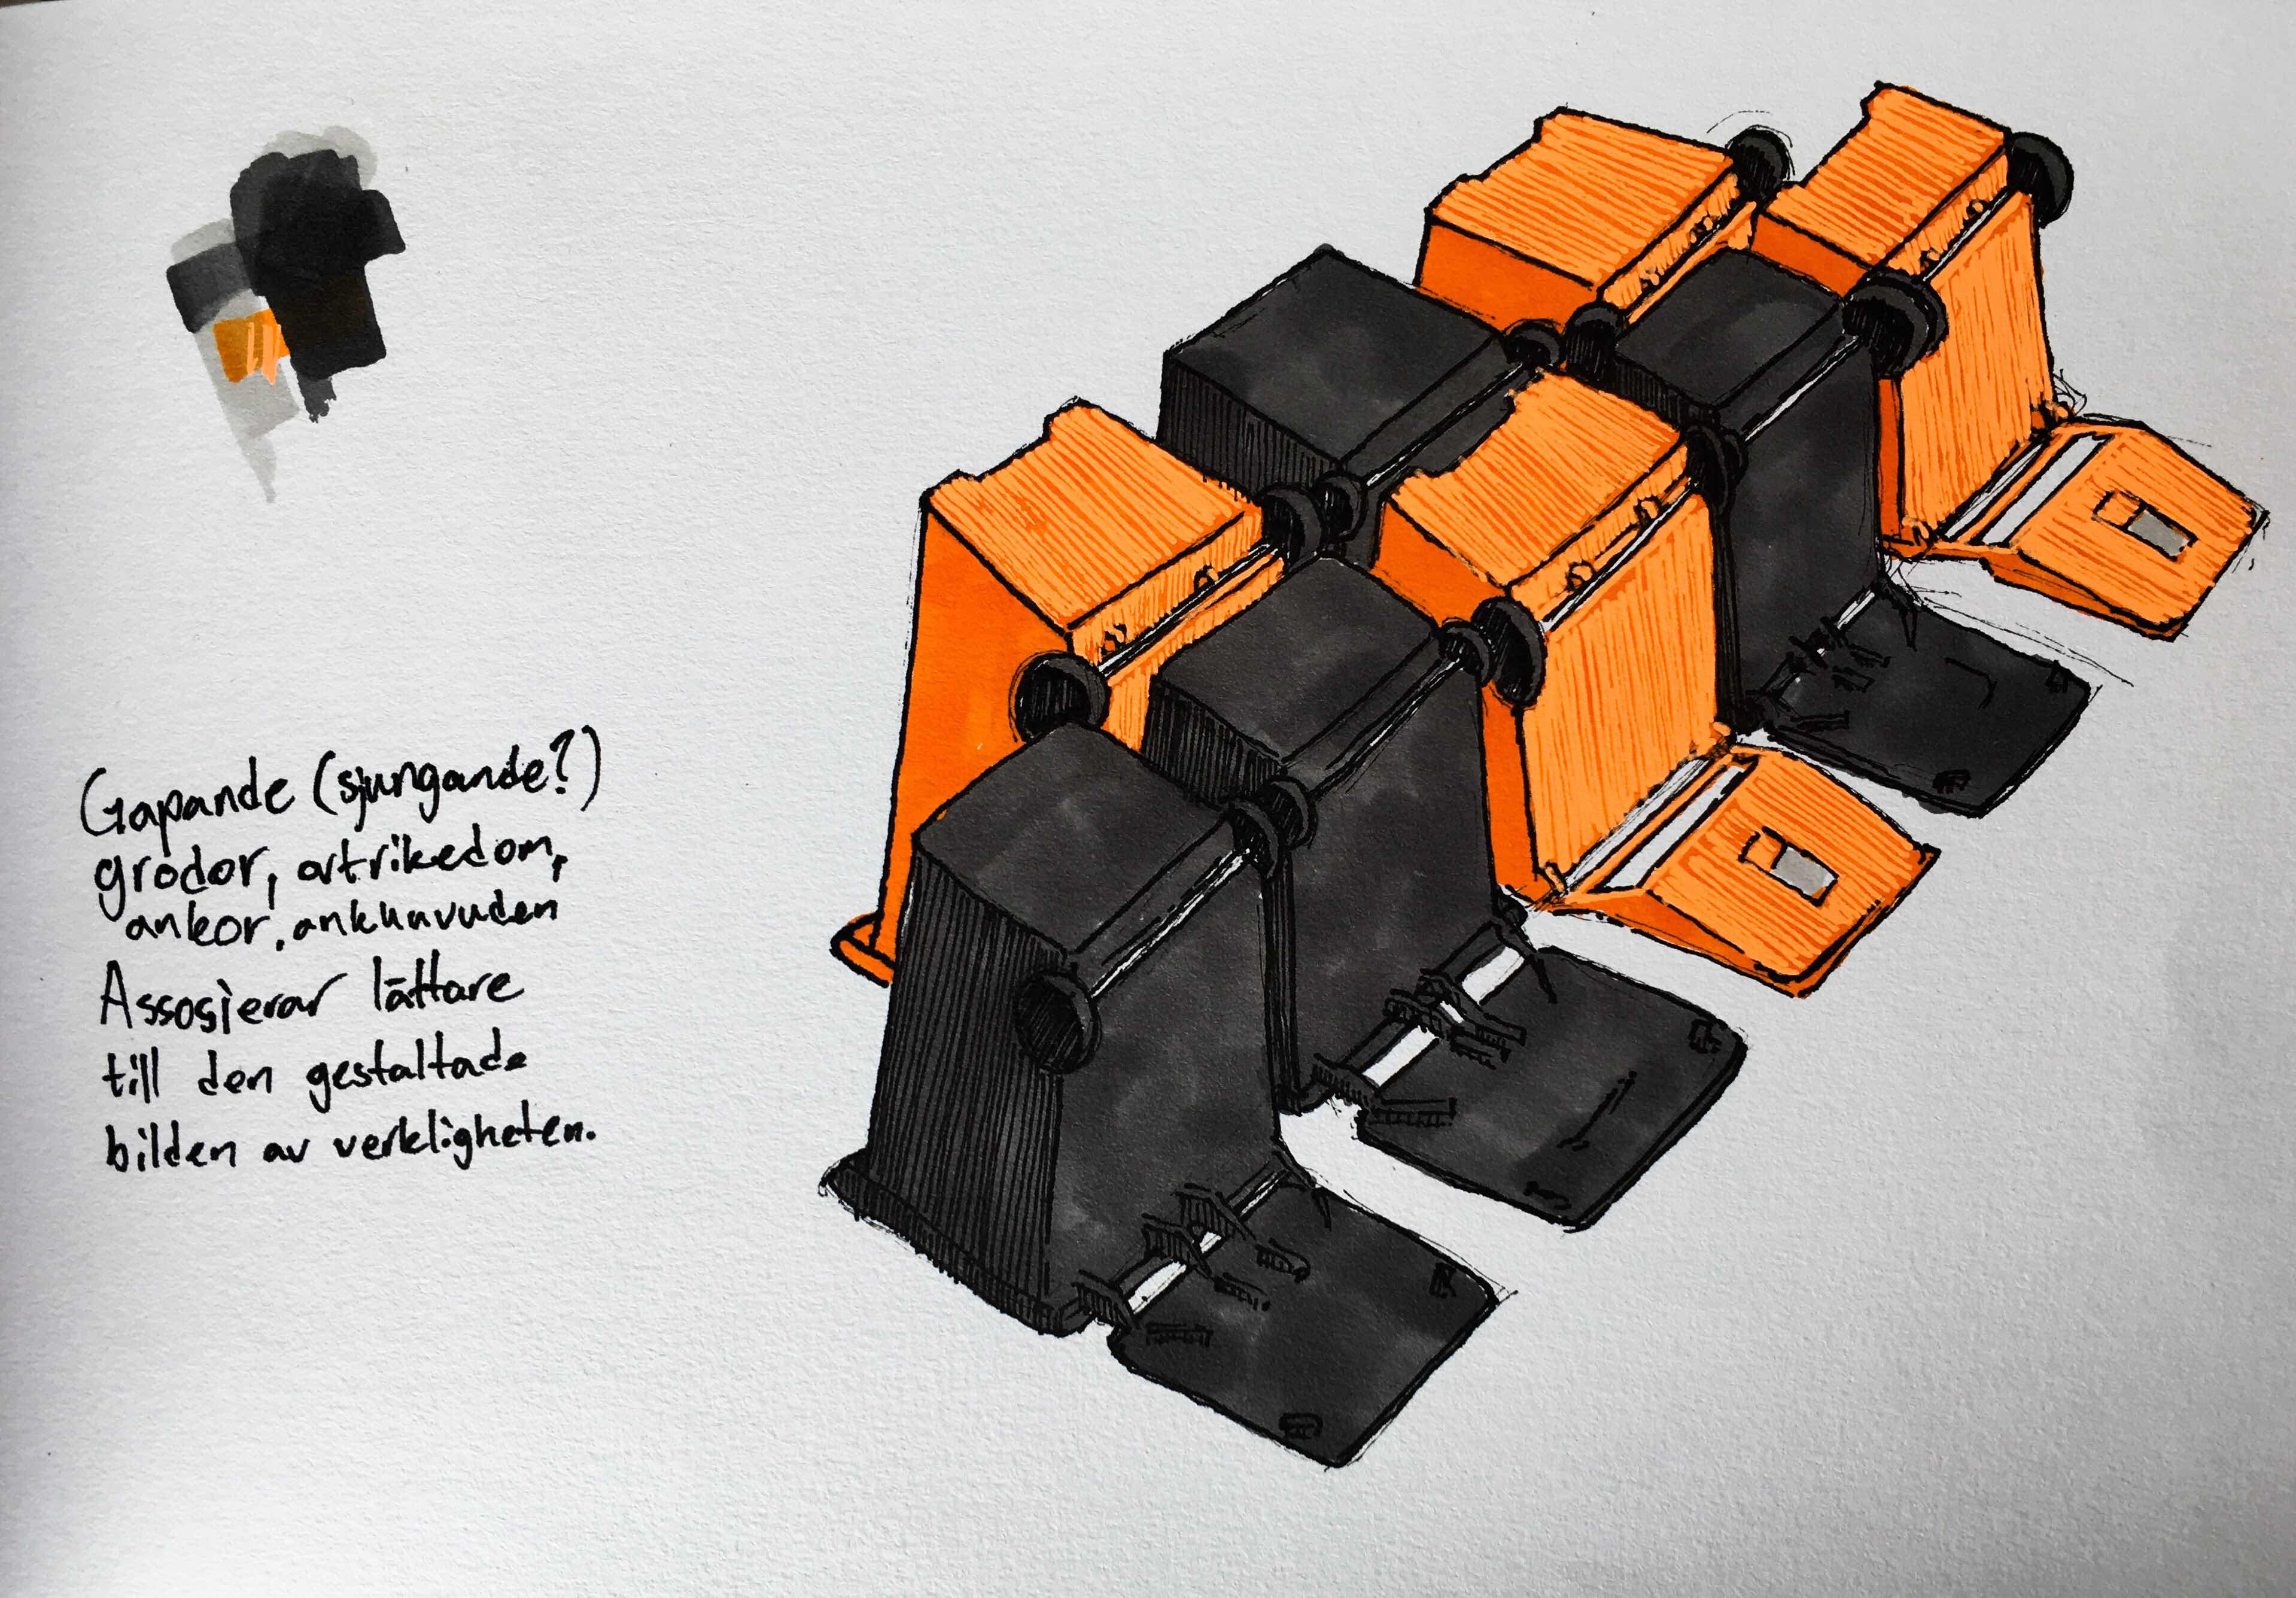 Gapande (sjungande?)
grodor, artrikedom,
ankor, ankhuvuden
Assosierar lättare
till den gestaltade
bilden av verkligheten.